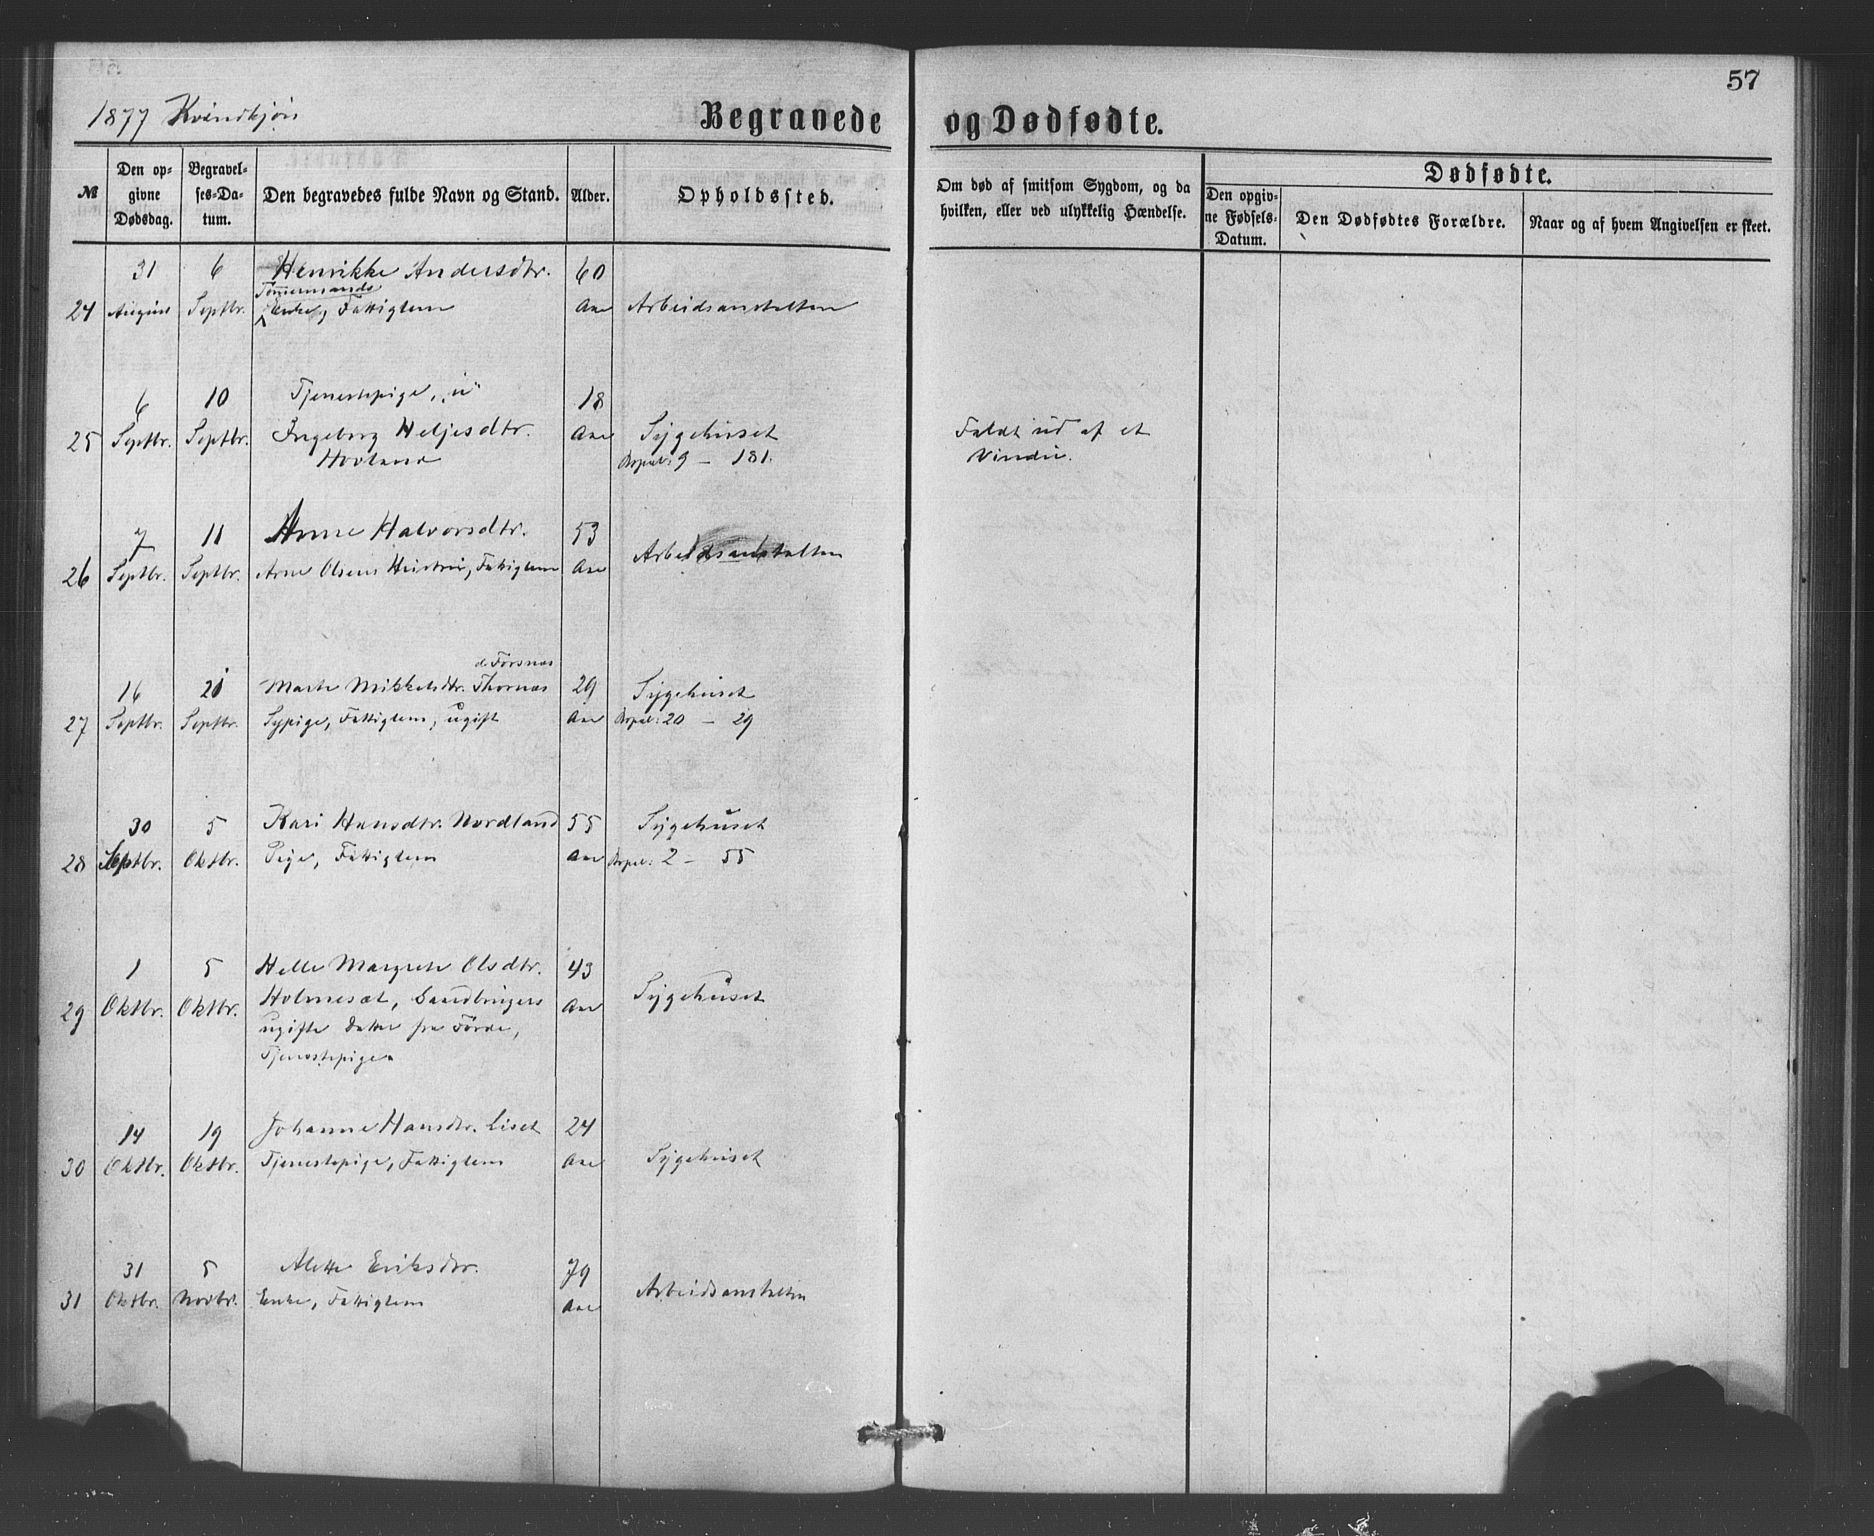 57
1877 Kvindkjøn
Begravede og Dødfødte.
№
Den opgivne Dødsdag.
Begravelses-Datum.
Den begravedes fulde Navn og Stand.
Alder.
Opholdssted.
Om død af smitsom Sygdom, og da hvilken, eller ved ulykkelig Hændelse.
Dødfødte.
Den opgivne Fødsels-Datum.
Den Dødfødtes Forældre.
Naar og af hvem Angivelsen er skeet.
31 6 Henrikke Andersdtr. 60
Tømermands
24 August Septbr. Enke, Fattiglem Aar Arbeidsanstalten
6 10 Tjenestepige, u 18
25 Septbr. Septbr. Ingeborg Heljesdtr. Aar Sygehuset Faldt ud af et
Hovland 9 - 181. Vindu.
7 11 Anne Halvorsdtr. 53
26 Septbr. Septbr. Arne Olsens Hustru, Fattiglem Aar Arbeidsanstalten
d. Forsnæs
16 21 Marte Mikkelsdtr. Thornæs 29 Sygehuset
27 Septbr. Septbr. Sypige, Fattiglem, ugift Aar 20 - 29
30 5 Kari Hansdtr. Nordland 55 Sygehuset
28 Septbr. Oktbr. Pige, Fattiglem Aar 2 - 55
1 5 Helle Margrete Olsdtr. 43
29 Oktbr. Oktbr. Holmesæt, Gaardbrugers Aar Sygehuset
ugifte Datter fra Førde,
Tjenestepige.
14 19 Johanne Hansdtr. Liset 24
30 Oktbr. Oktbr. Tjenestepige, Fattiglem Aar Sygehuset
31 5 Alette Eriksdtr. 79
31 Oktbr. Novbr. Enke, Fattiglem Aar Arbeidsanstalten